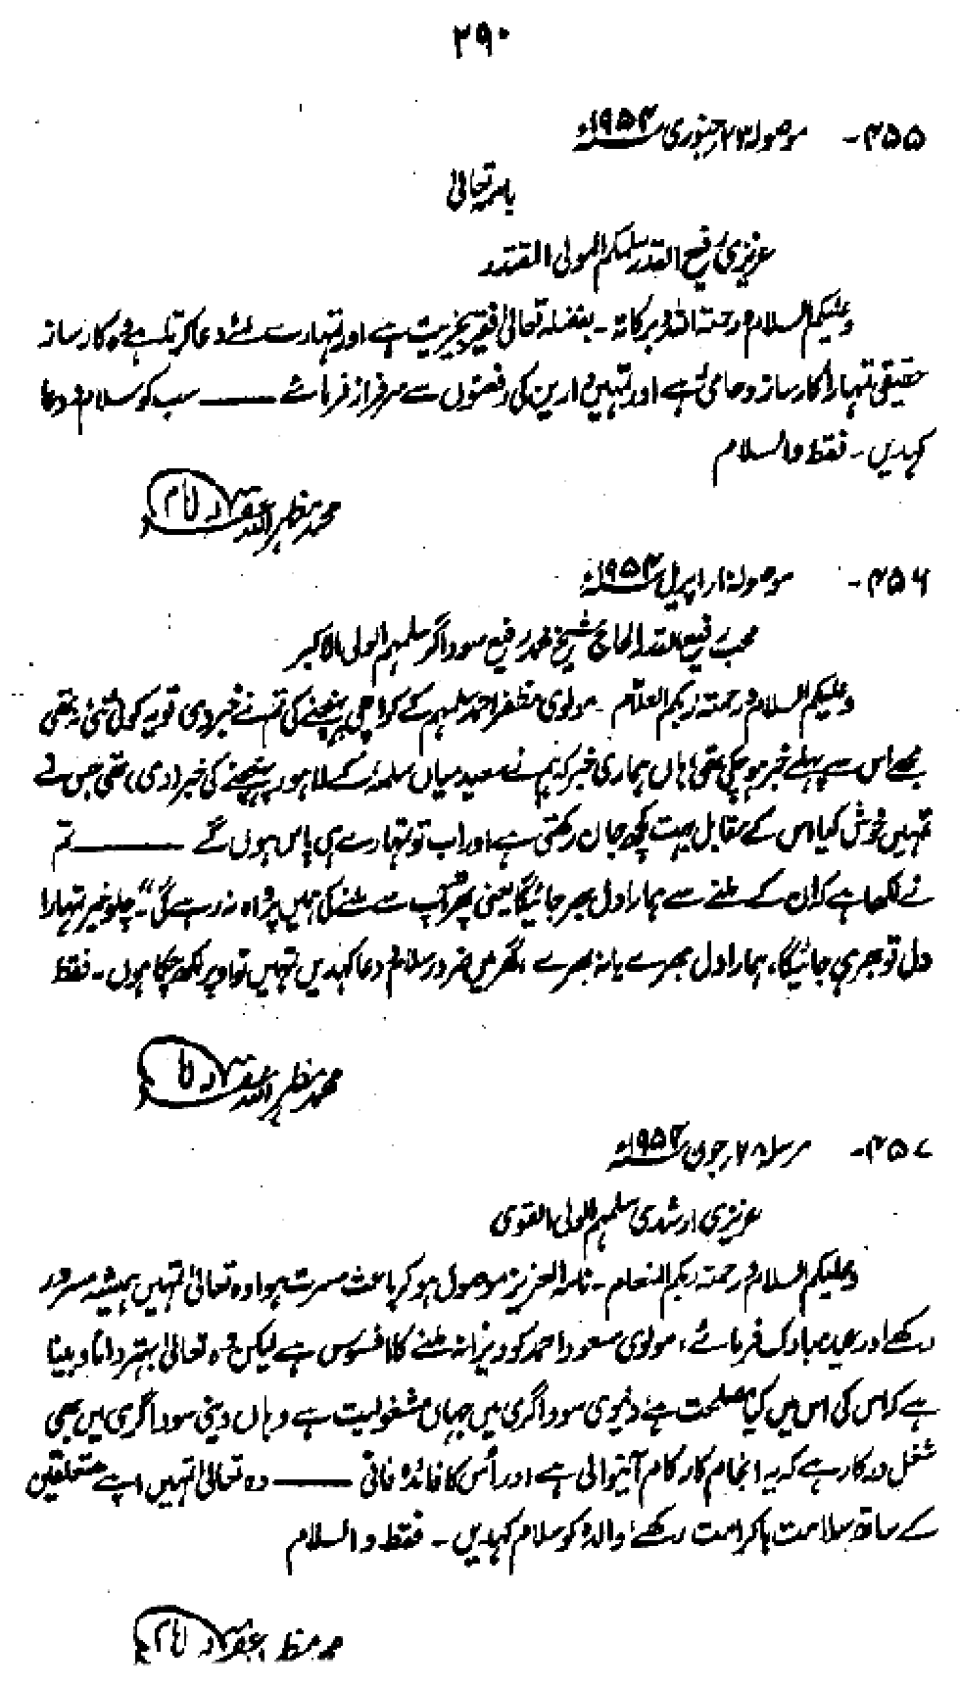 ۲۹۰
۴۵۵- موصولہ ۲۳ جنوری ۱۹۵۴ء
باسمہ تعالیٰ
عزیزی رفیع القدر سلمکم المولی المقتدر
وعلیکم السلام ورحمتہ اللہ وبرکاتہ۔ بفضلہ تعالیٰ فقیر بخیریت ہے اور تمہارے لئے دعا کرتا ہے وہ کارساز
حقیقی تمہارا کارساز و حامی ہے اور تمہیں دارین کی رفعتوں سے سرفراز فرمائے ——— سب کو سلام و دعا
کہدیں۔ فقط والسلام
محمد مظہر اللہ غفرلہ
۴۵۶- موصولہ ۱۰ اپریل ۱۹۵۴ء
محب رفیع القدر الحاج شیخ محمد رفیع سوداگر سلمہم المولی الاکبر
وعلیکم السلام ورحمتہ ربکم العلام۔ مولوی مظفر احمد سلمہم کے کراچی پہنچنے کی تم نے خبر دی تو یہ کوئی نئی نہ تھی
مجھے اس سے پہلے خبر ہو چکی تھی ہاں ہماری خبر کہ ہم نے سعید میاں سلمہ کے لاہور پہنچنے کی خبر (دی) تھی جس نے
تمہیں خوش کیا اس کے مقابل بہت کچھ جان رکھتی ہے اور اب تو تمہارے ہی پاس ہوں گے ——— تم
نے لکھا ہے کہ ان کے ملنے سے ہمارا دل بھر جائیگا یعنی پھر آپ سے ملنے کی ہمیں پرواہ نہ رہے گی" چلو خیر تمہارا
دل تو بھر ہی جائیگا، ہمارا دل بھرے یا نہ بھرے، گھر میں ضرور سلام و دعا کہدیں تمہیں تو اوپر لکھ چکا ہوں۔ فقط
محمد مظہر اللہ غفرلہ
۴۵۷- مرسلہ ۲۸ جون ۱۹۵۴ء
عزیزی ارشدی سلمہم المولی القوی
وعلیکم السلام ورحمتہ ربکم المنعام۔ نامہ العزیز موصول ہو کر باعث مسرت ہوا وہ تعالیٰ تمہیں ہمیشہ مسرور
رکھے اور عید مبارک فرمائے، مولوی مسعود احمد کو ویزا نہ ملنے کا افسوس ہے لیکن وہ تعالیٰ بہتر دانا و بینا
ہے کہ اس کی اس میں کیا مصلحت ہے دنیوی سوداگری میں جہاں مشغولیت ہے وہاں دینی سوداگری میں بھی
شغل درکار ہے کہ یہ انجام کار کام آنیوالی ہے اور اس کا فائدہ فانی ——— وہ تعالیٰ تمہیں اپنے متعلقین
کے ساتھ سلامت باکرامت رکھے والدہ کو سلام کہدیں۔ فقط والسلام
محمد مظہر اللہ غفرلہ